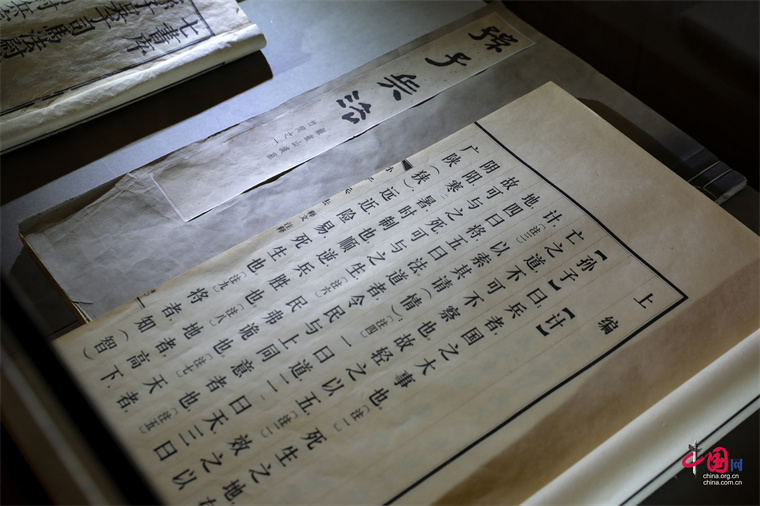 上编
【计】
【孙子】曰：兵者，国之大事也。〔注一〕死生之地，
亡之道，不可不察也。故轻之以五，〔注二〕效之以
计，〔注三〕以索其请（情）。〔注四〕一曰道，二曰天，三曰
地，四曰将，五曰法。道者，令民与上同意者也，
故可与之死，可与之生，民弗诡也。〔注七〕天者，
阴阳、寒暑、时制也。顺逆、兵胜也。〔注八〕地者，高下、
广陕（狭）、远近、险易、死生也。〔注九〕将者，知（智）
孫子兵法
七書序
中国网
china.org.cn
china.com.cn